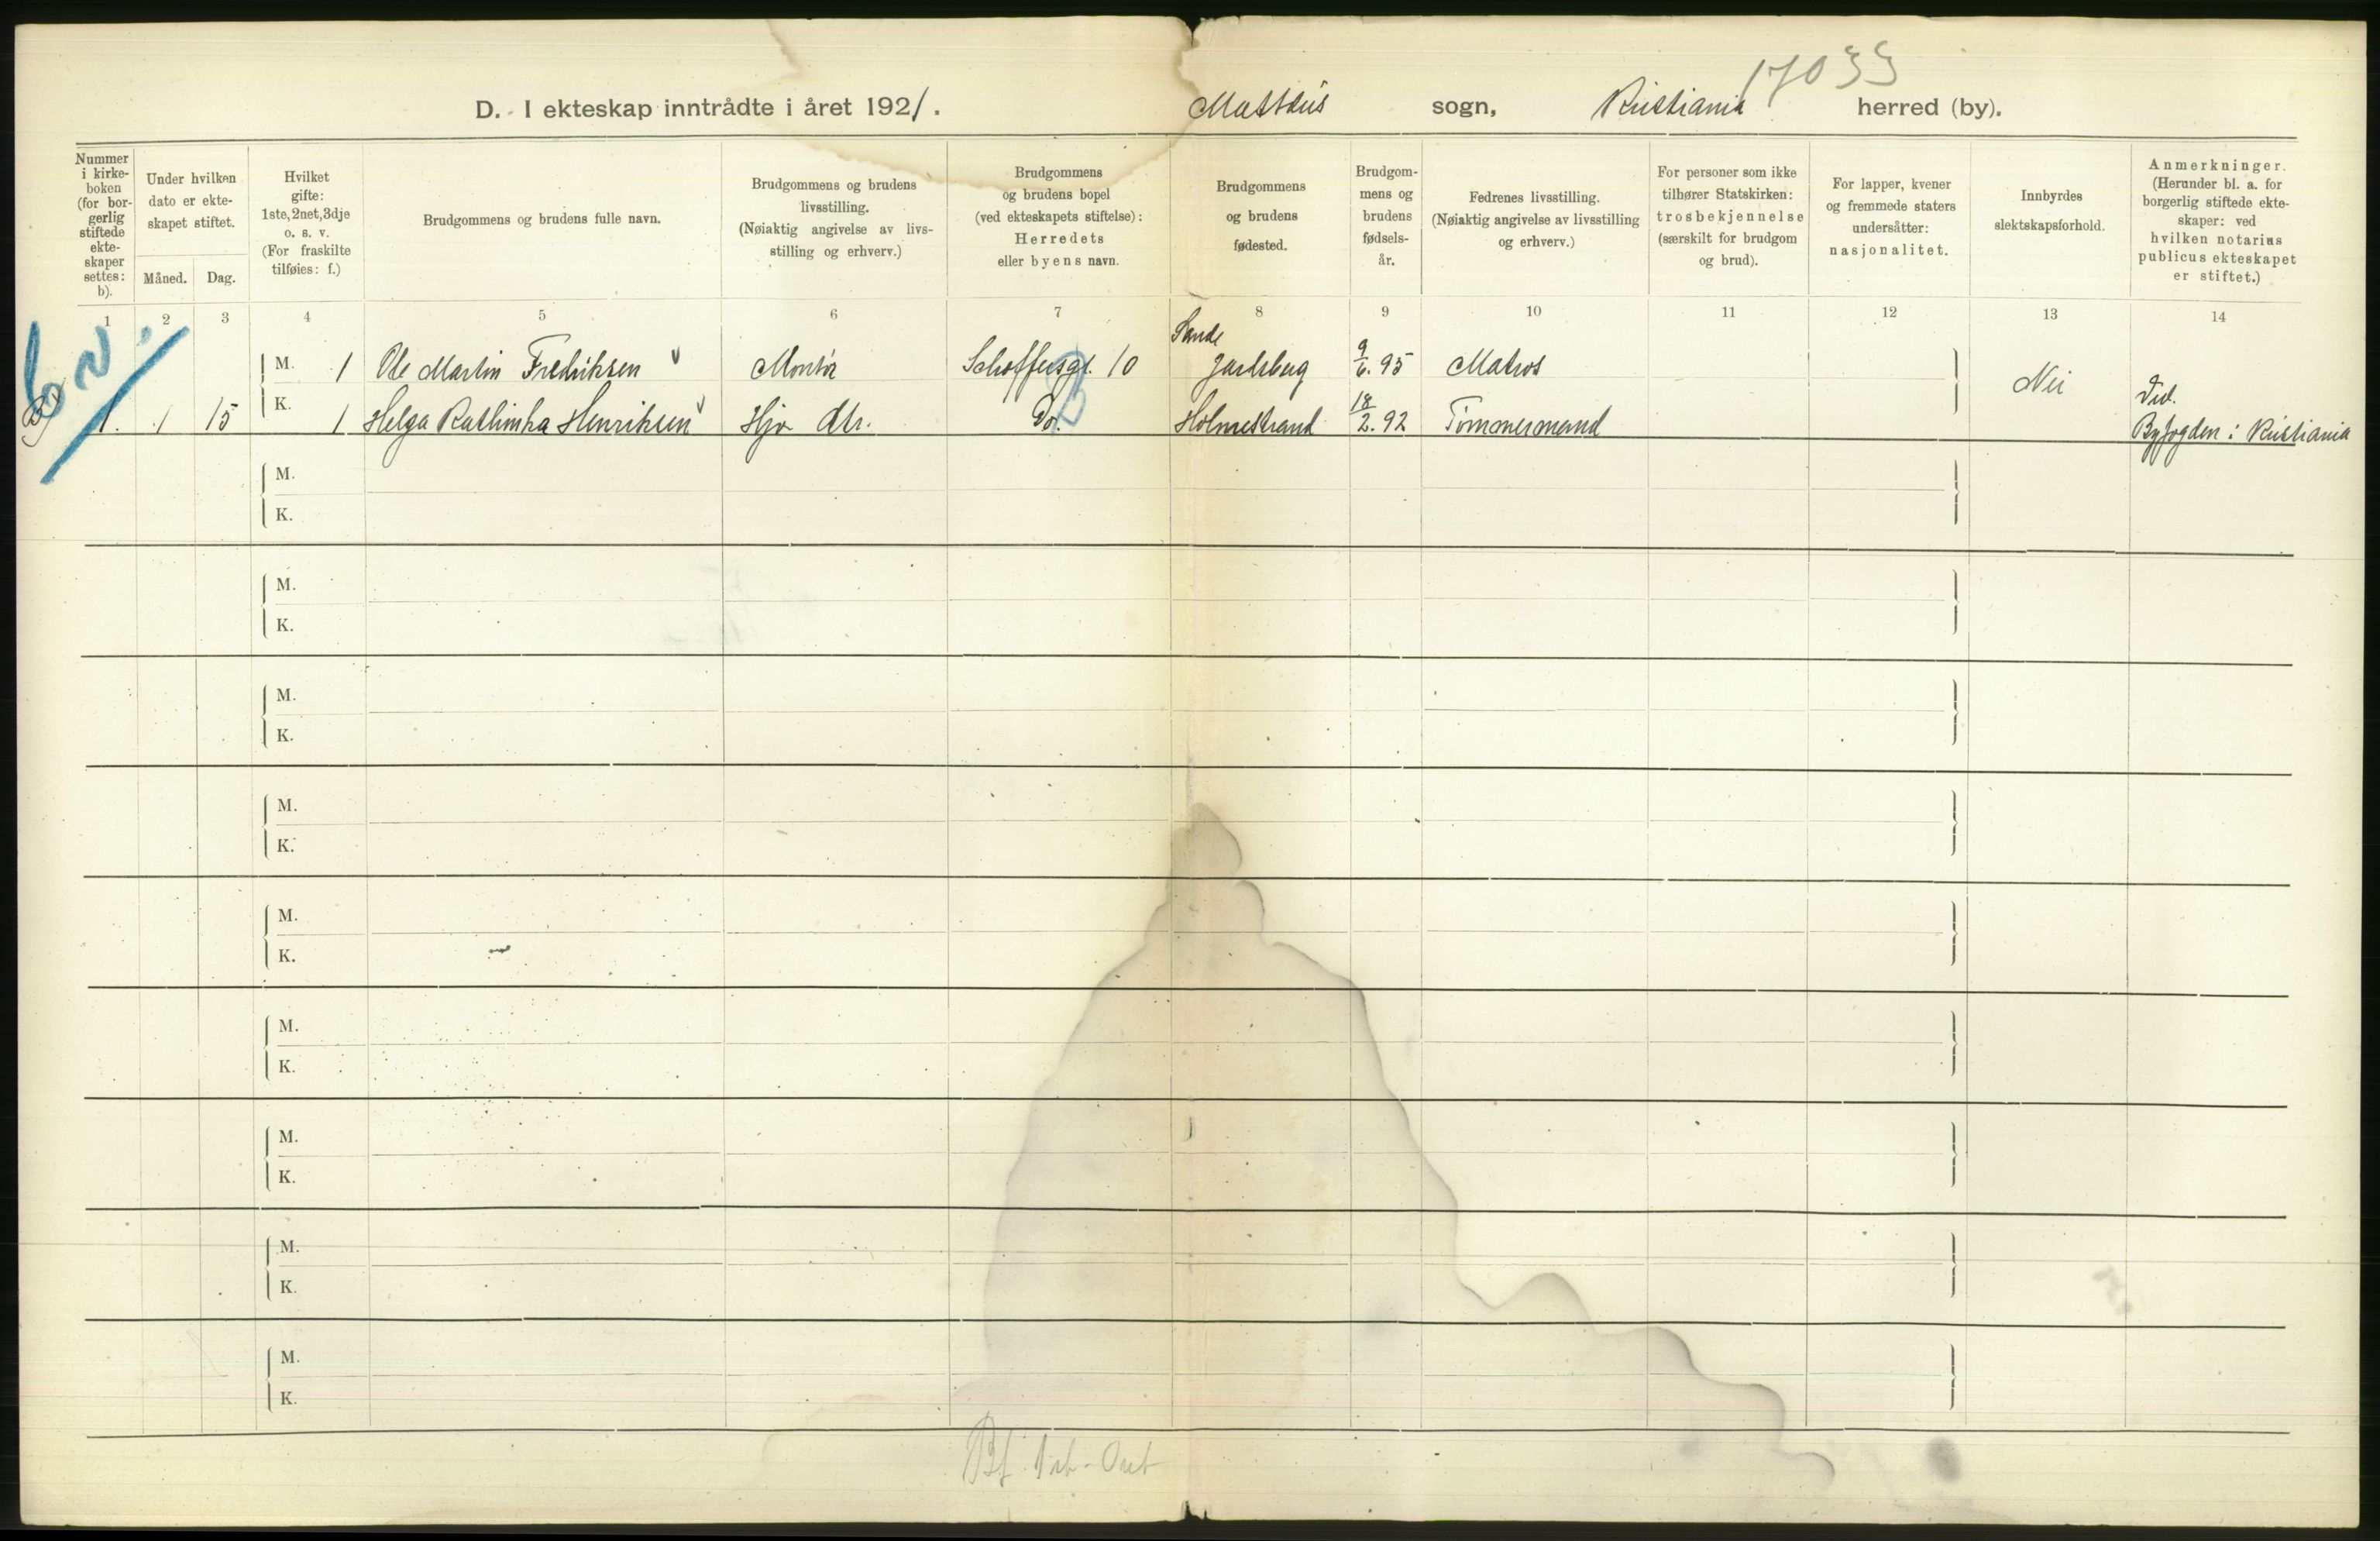 17033
D. - I ekteskap inntrådte i året 1921. Mattæus sogn, Kristiania herred (by).
Nummer i kirke-boken (for bor-gerlig stiftede ekte-skaper settes: b).
Under hvilken dato er ekte-skapet stiftet.
Måned. Dag.
Hvilket gifte: 1ste, 2net, 3dje o. s. v. (For fraskilte tilføies: f.)
Brudgommens og brudens fulle navn.
Brudgommens og brudens livsstilling. (Nøiaktig angivelse av livs-stilling og erhverv.)
Brudgommens og brudens bopel (ved ekteskapets stiftelse): Herredets eller byens navn.
Brudgommens og brudens fødested.
Brudgom-mens og brudens fødsels-år.
Fedrenes livsstilling. (Nøiaktig angivelse av livsstilling og erhverv.)
For personer som ikke tilhører Statskirken: trosbekjennelse (særskilt for brudgom og brud).
For lapper, kvener og fremmede staters undersåtter: nasjonalitet.
Innbyrdes slektskapsforhold.
Anmerkninger. (Herunder bl. a. for borgerlig stiftede ekte-skaper: ved hvilken notarius publicus ekteskapet er stiftet.)
1 2 3 4 5 6 7 8 9 10 11 12 13 14
Sande
M. 1 Ole Martin Fredriksen Montør Schøffersgt. 10 Jarlsberg 9/6. 95 Matros Nei
1. 1 15 K. 1 Helga Kathinka Henriksen Hjv. dtr. Do. Holmestrand 18/2. 92 Tømmermand
Byfogden i Kristiania
M.
K.
M.
K.
M.
K.
M.
K.
M.
K.
M.
K.
M.
K.
M.
K.
M.
K.